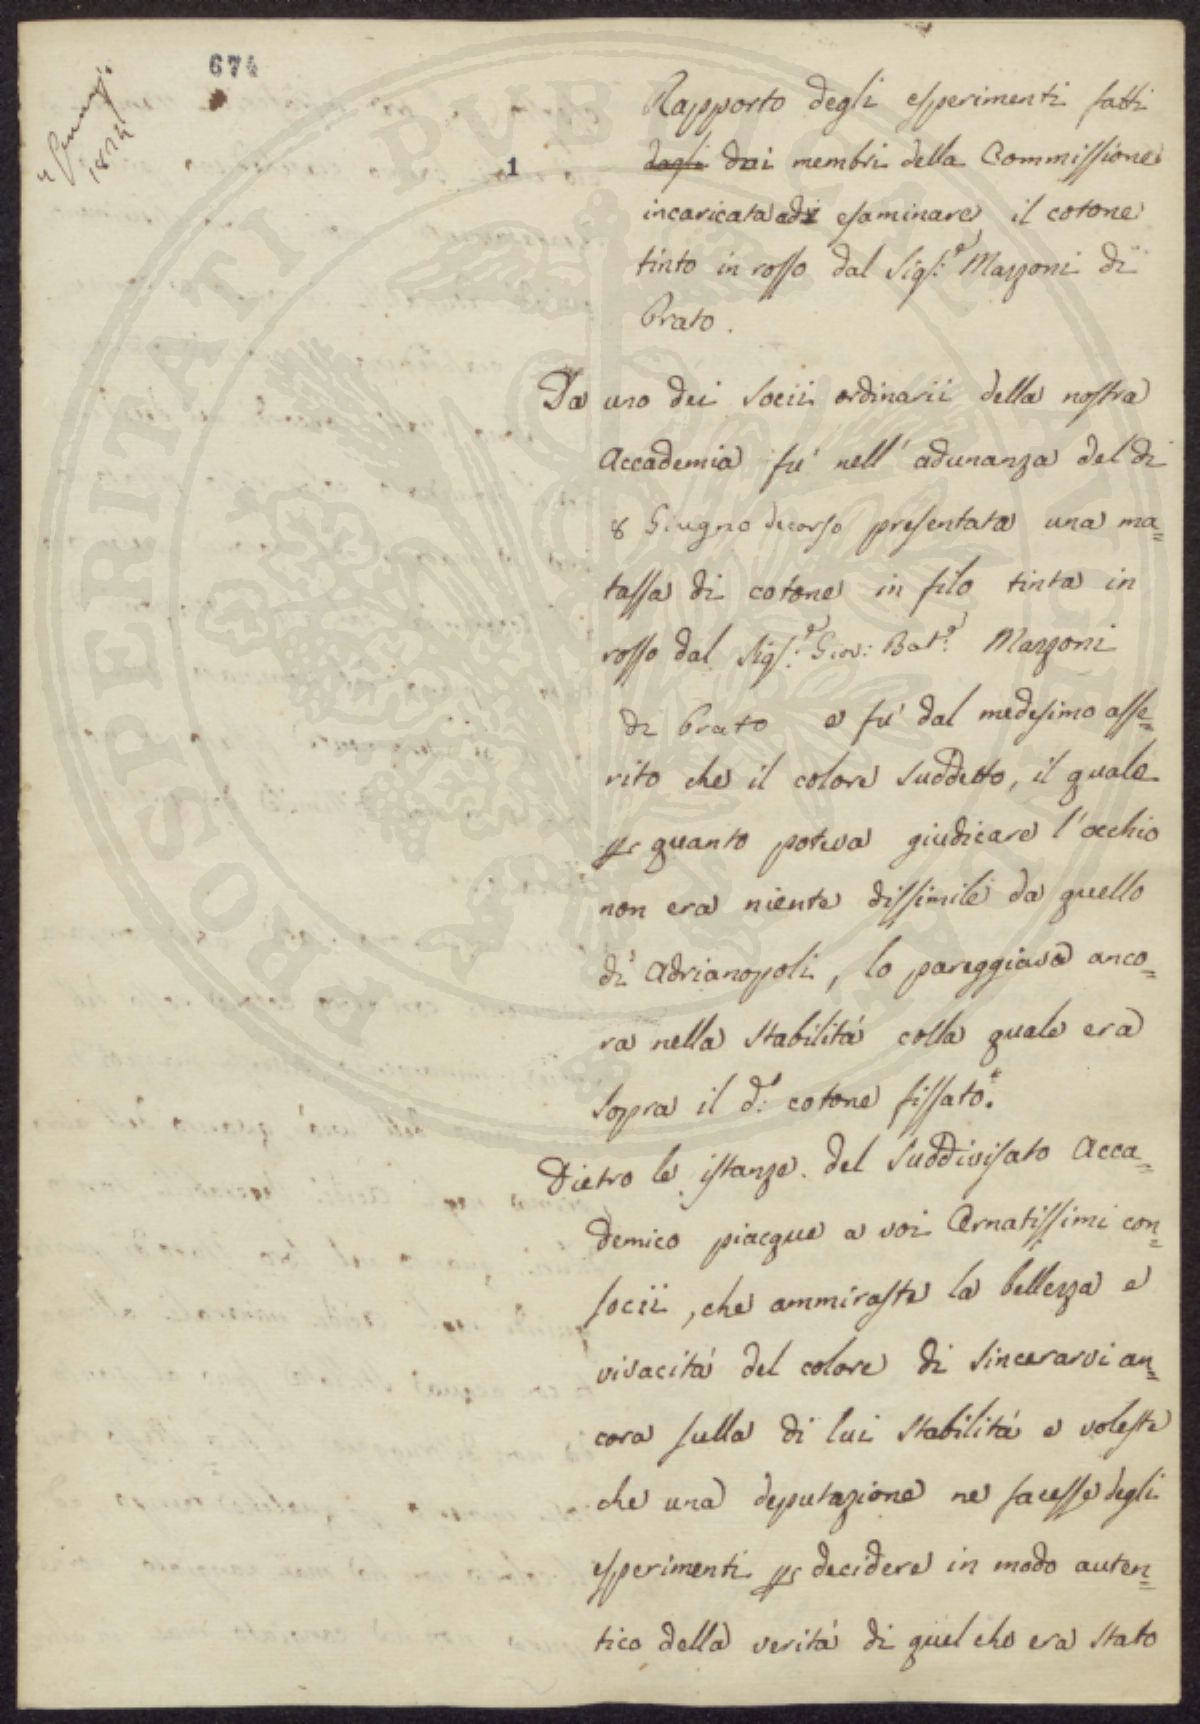 674
1824
1
Rapporto degli esperimenti fatti
dagli dai membri della Commissione
incaricata di esaminare il cotone
tinto in rosso dal Sig.r Mazzoni di
Prato.
Da uno dei Socii ordinarii della nostra
Accademia fu' nell' adunanza del di
8 Giugno decorso presentata una ma=
tassa di cotone in filo tinta in
rosso dal Sig.r Giov: Bat.a Mazzoni
di Prato e fu' dal medesimo asse=
rito che il colore suddetto, il quale
per quanto poteva giudicare l'occhio
non era niente dissimile da quello
di Adrianopoli, lo pareggiava anco=
ra nella stabilitá colla quale era
sopra il d.o cotone fissato.
Dietro le istanze del suddivisato Acca=
demico piacque a voi Ornatissimi con=
socii, che ammiraste la bellezza e
vivacitá del colore di sincerarvi an=
cora sulla di lui stabilitá e voleste
che una deputazione ne facesse degli
esperimenti per decidere in modo auten=
tico della veritá di quel che era stato
PROSPERITATI PUBLICAE AUGENDAE